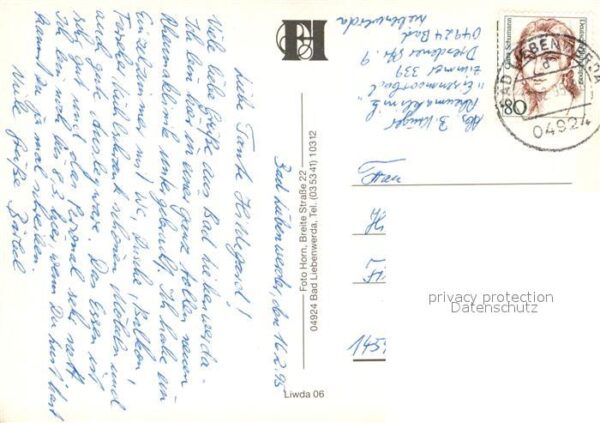 Bad Liebenwerda, den 16.2.95
Liebe Tante Hildegard!
Viele liebe Grüße aus Bad Liebenwerda.
Ich bin hier in einer ganz tollen neuen
Rheumaklinik untergebracht. Ich habe ein
Einzelzimmer mit Wc, Dusche, Balkon,
Fernseher, Radio, Telefon, schönen Möbeln und
auch gute Auslegware. Das Essen ist
sehr gut und das Personal sehr nett.
Ich bin noch bis 8.3. hier, wenn Du Lust hast
kannst Du ja mal schreiben.
Viele Grüße Bärbel
Foto Horn, Breite Straße 22
04924 Bad Liebenwerda, Tel. (035341) 10312
Liwda 06
Abs B. Krüger
Rheumaklinik
"Eisenmoorbad"
Zimmer 339
Dresdener Str. 9
04924 Bad
Liebenwerda
Clara Schumann
Deutsche Bundespost
80
BAD LIEBENWERDA
04924
Frau
H
145
privacy protection
Datenschutz